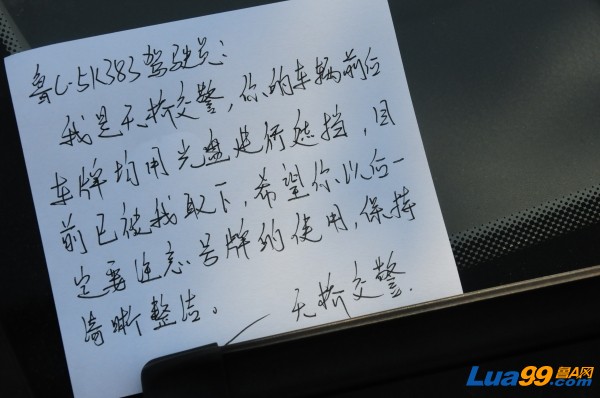 鲁C-5K383驾驶员:
我是天桥交警,你的车辆前后
车牌均用光盘进行遮挡,目
前已被我取下,希望你以后一
定要注意号牌的使用,保持
清晰整洁。
天桥交警.
Lua99鲁A网
.com